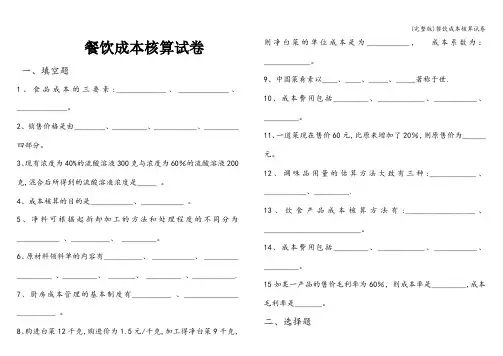 (完整版)餐饮成本核算试卷
餐饮成本核算试卷
一、填空题
1、食品成本的三要素:___________、___________、
___________。
2、销售价格是由_______、________、__________、________
四部分。
3、现有浓度为40%的流酸溶液300克与浓度为60%的流酸溶液200
克,混合后所得到的流酸溶液浓度是_____ 。
4、成本核算的目的是__________、__________ 。
5、净料可根据起拆卸加工的方法和处理程度的不同分为
__________ 、_________、 ________。
6、原材料领料单的内容有_________、 __________、__________
________、________、 ________、 ________ 、__________.
7、厨房成本管理的基本制度有_________ 、____________
_________ 。
8、购进白菜12千克,购进价为1.5元/千克,加工得净白菜9千克,
则净白菜的单位成本是为__________, 成本系数为:
___________。
9、中国菜肴素以____、____、_____、_____著称于世.
10、成本费用包括________、__________、__________、
________。
11、一道菜现在售价60元,比原来增加了20%,则原售价为______
元。
12、调味品用量的估算方法大致有三种:__________、
__________、________.
13、饮食产品成本核算方法有:________________、
______________________。
14、成本费用包括________、__________、__________、
________。
15如某一产品的售价毛利率为60%,则成本率是________,成本
毛利率是______。
二、选择题